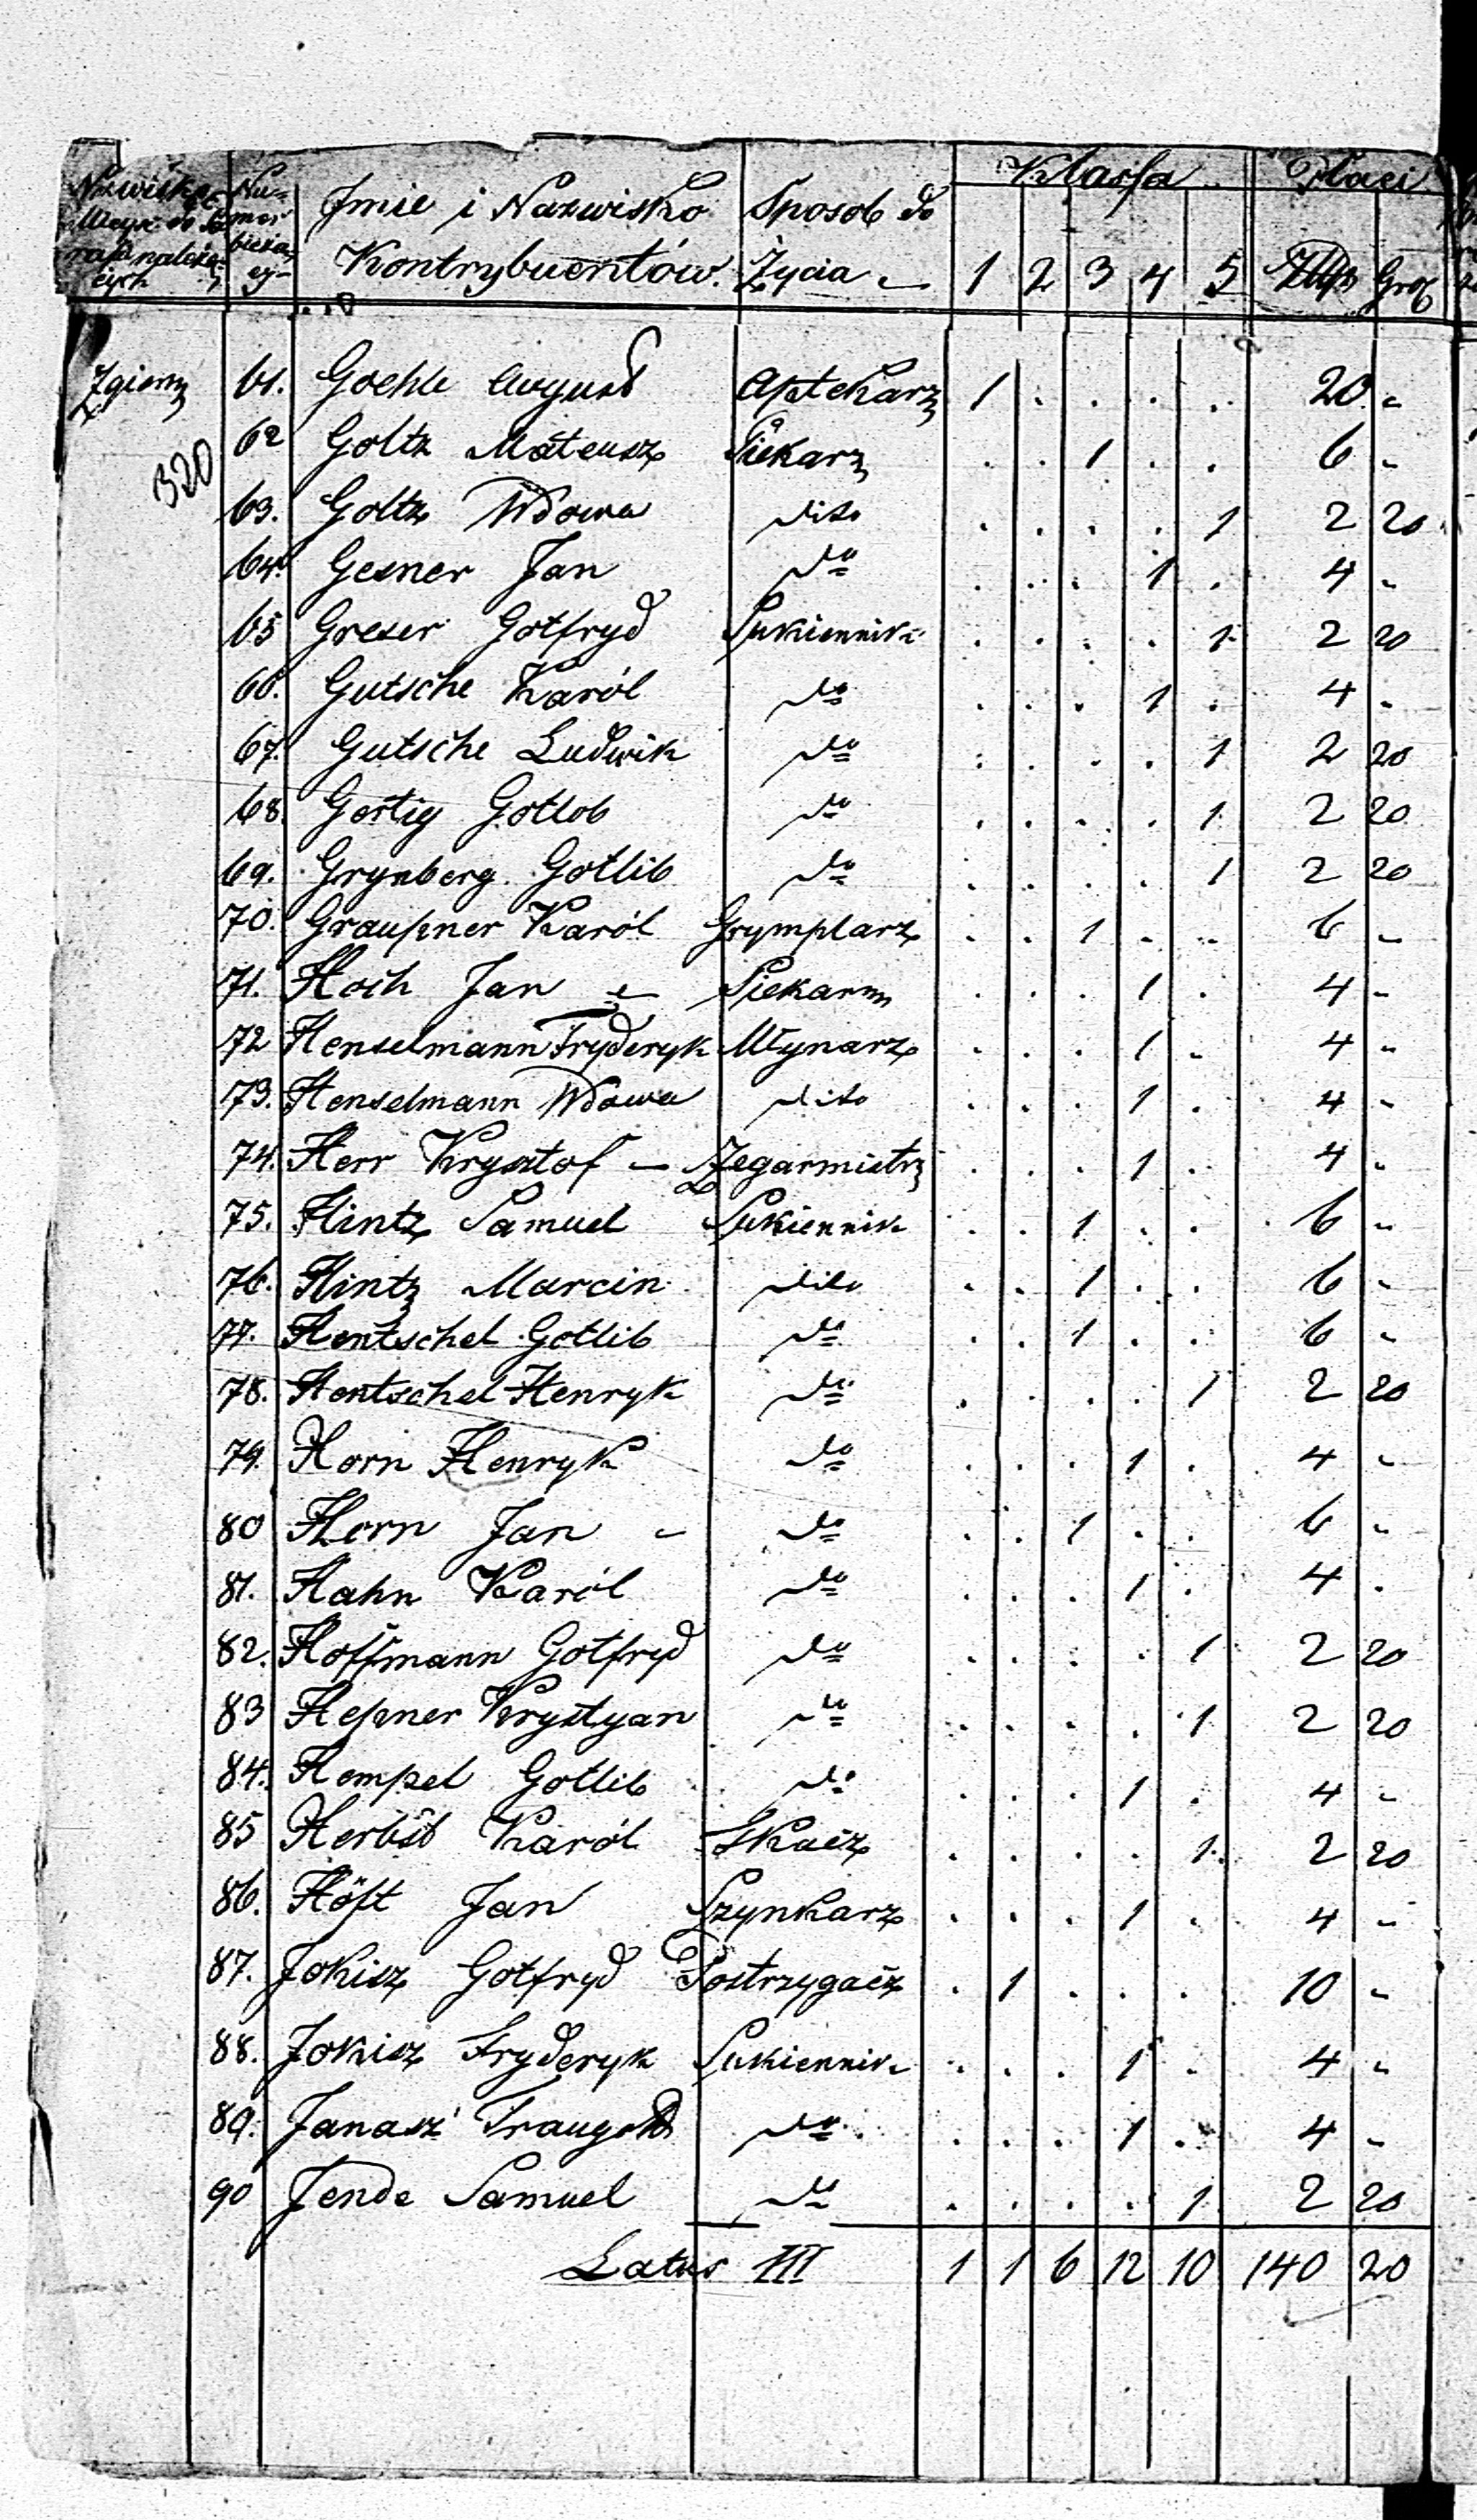 Nazwiska Nu= Imie i Nazwisko Sposob do Klassa Płaci
Kontrybuentów. Życia 1 2 3 4 5 Złłp Gro
Zgierz 61. Goehle August Aptekarz 1 . . . . 20 -
320
62 Goltz Mateusz Piekarz . . 1 . . 6 -
63. Goltz Wdowa dito . . . . 1 2 20
64. Gesner Jan do . . . 1 . 4 -
65 Greser Gotfryd Sukiennik . . . . 1 2 20
66. Gutsche Karól do . . . 1 . 4 -
67. Gutsche Ludwik do . . . . 1 2 20
68. Gertig Gotlob do . . . . 1 2 20
69. Grynberg Gotlib do . . . . 1 2 20
70. Graupner Karól Grymplarz . . 1 . . 6 -
71. Hoch Jan - Piekarz . . . 1 . 4 -
72 Henselmann Fryderyk Młynarz . . . 1 . 4 -
73. Henselmann Wdowa dito . . . 1 . 4 -
74. Herr Krysztof - Zegarmistrz . . . 1 . 4 -
75. Hintz Samuel Sukiennik . . 1 . . 6 -
76. Hintz Marcin dito . . 1 . . 6 -
77. Hentschel Gotlib do . . 1 . . 6 -
78. Hentschel Henryk do . . . . 1 2 20
79. Horn Henryk do . . . 1 . 4 -
80 Horn Jan - do . . 1 . . 6 -
81. Hahn Karól do . . . 1 . 4 .
82. Hoffmann Gotfryd do . . . . 1 2 20
83 Hepner Krystyan do . . . . 1 2 20
84. Hempel Gotlib do . . . 1 . 4 -
85 Herbst Karól Tkacz . . . . 1. 2 20
86. Höft Jan Szynkarz . . . 1 . 4 -
87. Jokisz Gotfryd Postrzygacz . 1 . . . 10 -
88. Jokisz Fryderyk Sukiennik . . . 1 . 4 -
89. Janasz Traugott do . . . 1 . 4 -
90 Jende Samuel do . . . . 1 2 20
Latus III 1 1 6 12 10 140 20